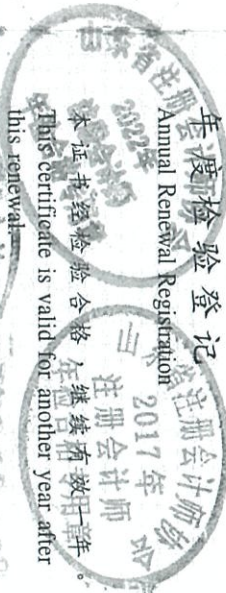 年度检验登记
Annual Renewal Registration
本证书经检验合格,继续有效一年。
This certificate is valid for another year after
this renewal.
省注册会计师协会
2022年
省注册会计师协会
2017年
注册会计师